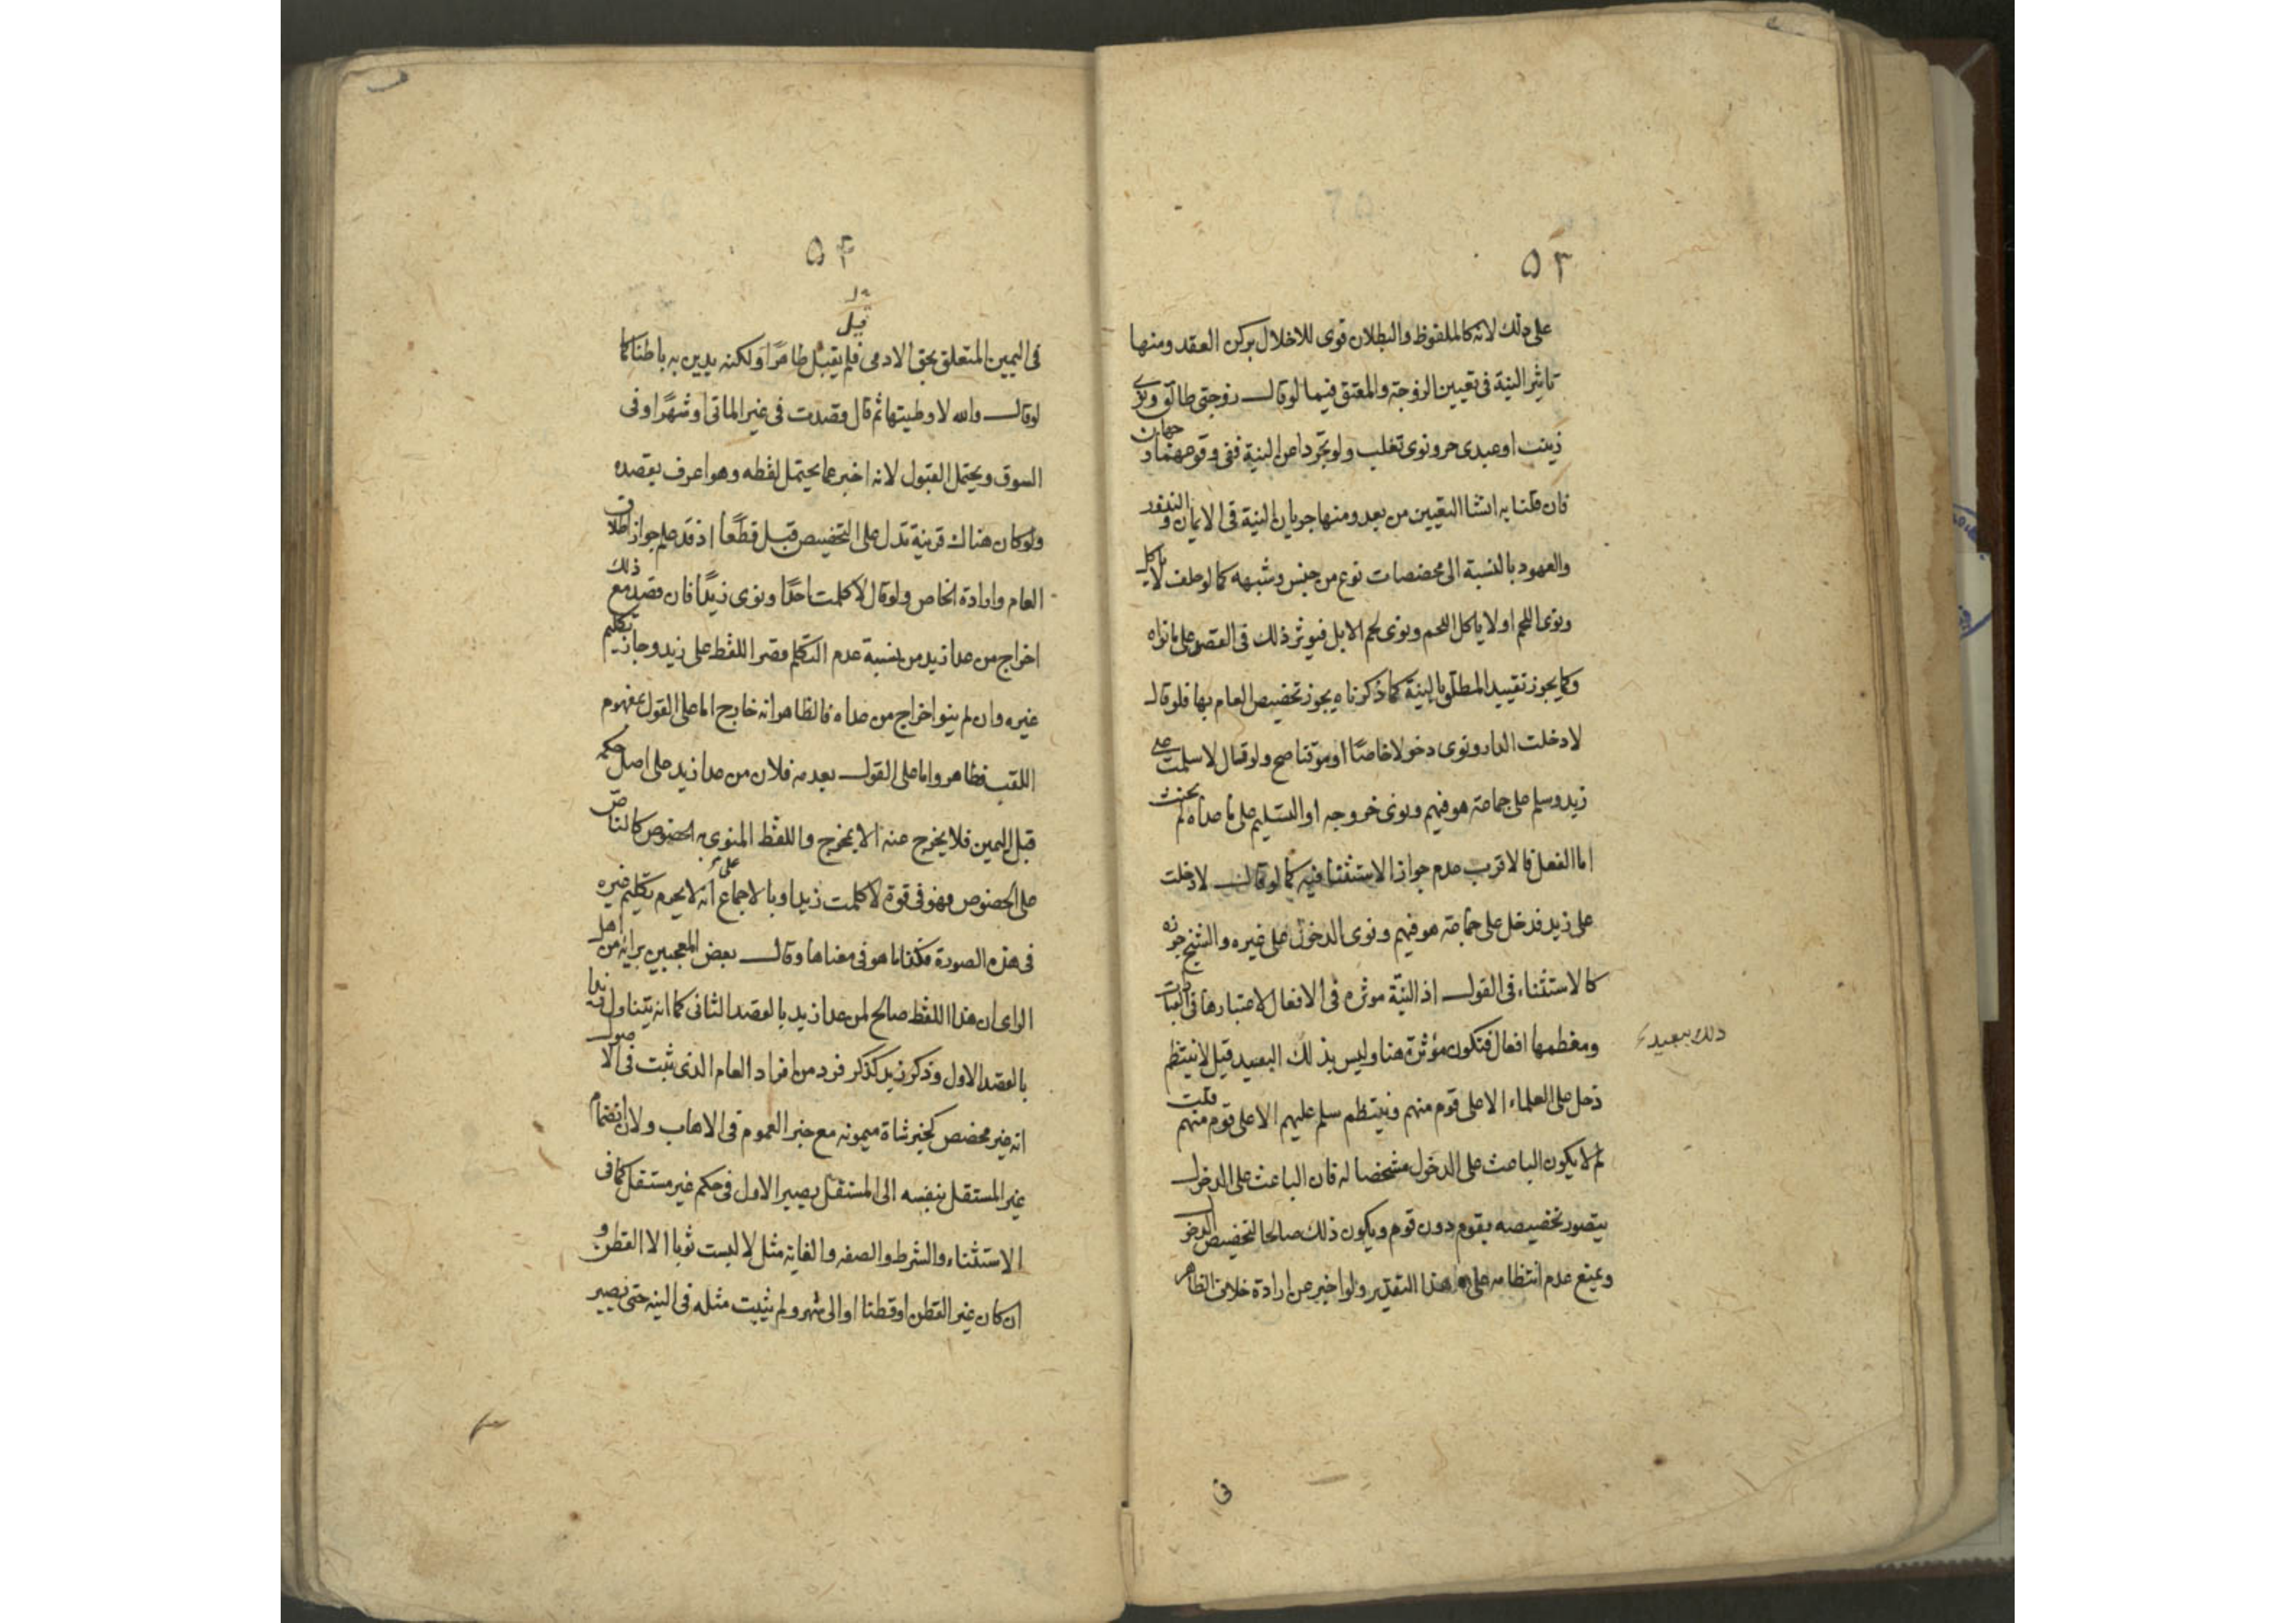 ٥٣
على ذلك لانه كالملفوظ والبطلان قوى للاخلال بركن العقد ومنها
تاثير النية فى تعيين الزوجة والمعتق فيما لوقال زوجتى طالق ونوى
زينت او عبدى حر ونوى تغلب ولو تجردا عن النية ففى وقوعهما وجهان
فان قلنا به انشا التعيين من بعد ومنها جريان النية فى الايمان والنذور
والعهود بالنسبة الى مخصصات نوع من جنس وشبهه كما لو حلف لا ياكل
ونوى اللحم او لا ياكل اللحم ونوى لحم الابل فيوثر ذلك فى القصر على ما نواه
وكما يجوز تقييد المطلق بالنية كما ذكرناه يجوز تخصيص العام بها فلو قال
لا دخلت الدار ونوى دخولا خاصًا او موقتا صح ولو قال لا سلمت على
زيد وسلم على جماعة هو فيهم ونوى خروجه او التسليم على ما عداه لم يحنث
اما الفعل فالاقرب عدم جواز الاستثناء فيه كما لو قال لا دخلت
على زيد فدخل على جماعة هو فيهم ونوى الدخول على غيره والشيخ جوزه
كالاستثناء فى القول اذ النيّة موثره فى الافعال لاعتبارها فى العبادات
ومعظمها افعال فتكون مؤثرة هنا وليس بذلك البعيد قيل لا ينتظم
ذلك ببعيد
دخل على العلماء الا على قوم منهم وينتظم سلم عليهم الا على قوم منهم قلت
لم لا يكون الباعث على الدخول مشخصا له فان الباعث على الدخول
يتصور تخصيصه بقوم دون قوم ويكون ذلك صالحا لتخصيص الدخول
ويمنع عدم انتظامه على هذا التقدير ولو اخبر عن ارادة خلاف الظاهر
فى
٥٤
قبل
فى اليمين المتعلق بحق الادمى فلم يقبل ظاهرًا ولكنه يدين به باطنا كما
لوقال والله لا وطيتها ثم قال قصدت فى غير الماتى او شهرًا او فى
السوق ويحتمل القبول لانه اخبر عما يحتمل لفظه وهو اعرف بقصده
ولو كان هناك قرينة تدل على التخصيص قبل قطعًا اذ قد علم جواز اطلاق
العام وارادة الخاص ولوقال لا كلمت احدًا ونوى زيدًا فان قصد مع ذلك
اخراج من عدا زيد من نسبة عدم التكلم قصر اللفظ على زيد وجاز تكليم
غيره وان لم ينو اخراج من عداه فالظاهر انه خارج اما على القول بمفهوم
اللقب فظاهر واما على القول بعدمه فلان من عدا زيد على اصل حكمه
قبل اليمين فلا يخرج عنه الا بمخرج واللفظ المنوى به الخصوص كالناص
على الخصوص فهو فى قوة لا كلمت زيدا وبالاجماع على انه لا يحرم تكليم غيره
فى هذه الصورة فكذا ما هو فى معناها وقال بعض المعجبين برايه من اهل
الراى ان هذا اللفظ صالح لمن عدا زيد بالقصد الثانى كما انه يتناول زيدا
بالقصد الاول وذكر زيد كذكر فرد من افراد العام الذى ثبت فى الاصول
انه غير مخصص كخبر شاة ميمونه مع خبر العموم فى الاهاب ولان انضمام
غير المستقل بنفسه الى المستقل يصير الاول فى حكم غير مستقل كما فى
الاستثناء والشرط والصفه والغايه مثل لا لبست ثوبا الا القطن و
ان كان غير القطن او قطنا او الى شهر ولم يثبت مثله فى النيه حتى يصير